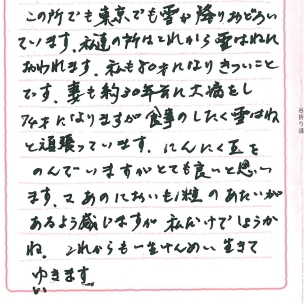 この所でも東京でも雪が降りおどろい
ています。私達の所はこれから雪はねに
おわれます。私も80才になりきついこと
です。妻も約30年前に大病をし
74才になりますが食事のしたく雪はね
と頑張っています。にんにく玉を
のんでいますがとても良いと思い
ます。又あのにおいも1粒のあたいが
あるよう感じますが私だけでしょうか
ね。これからも一生けんめい生きて
ゆきます。
い
谷折り線